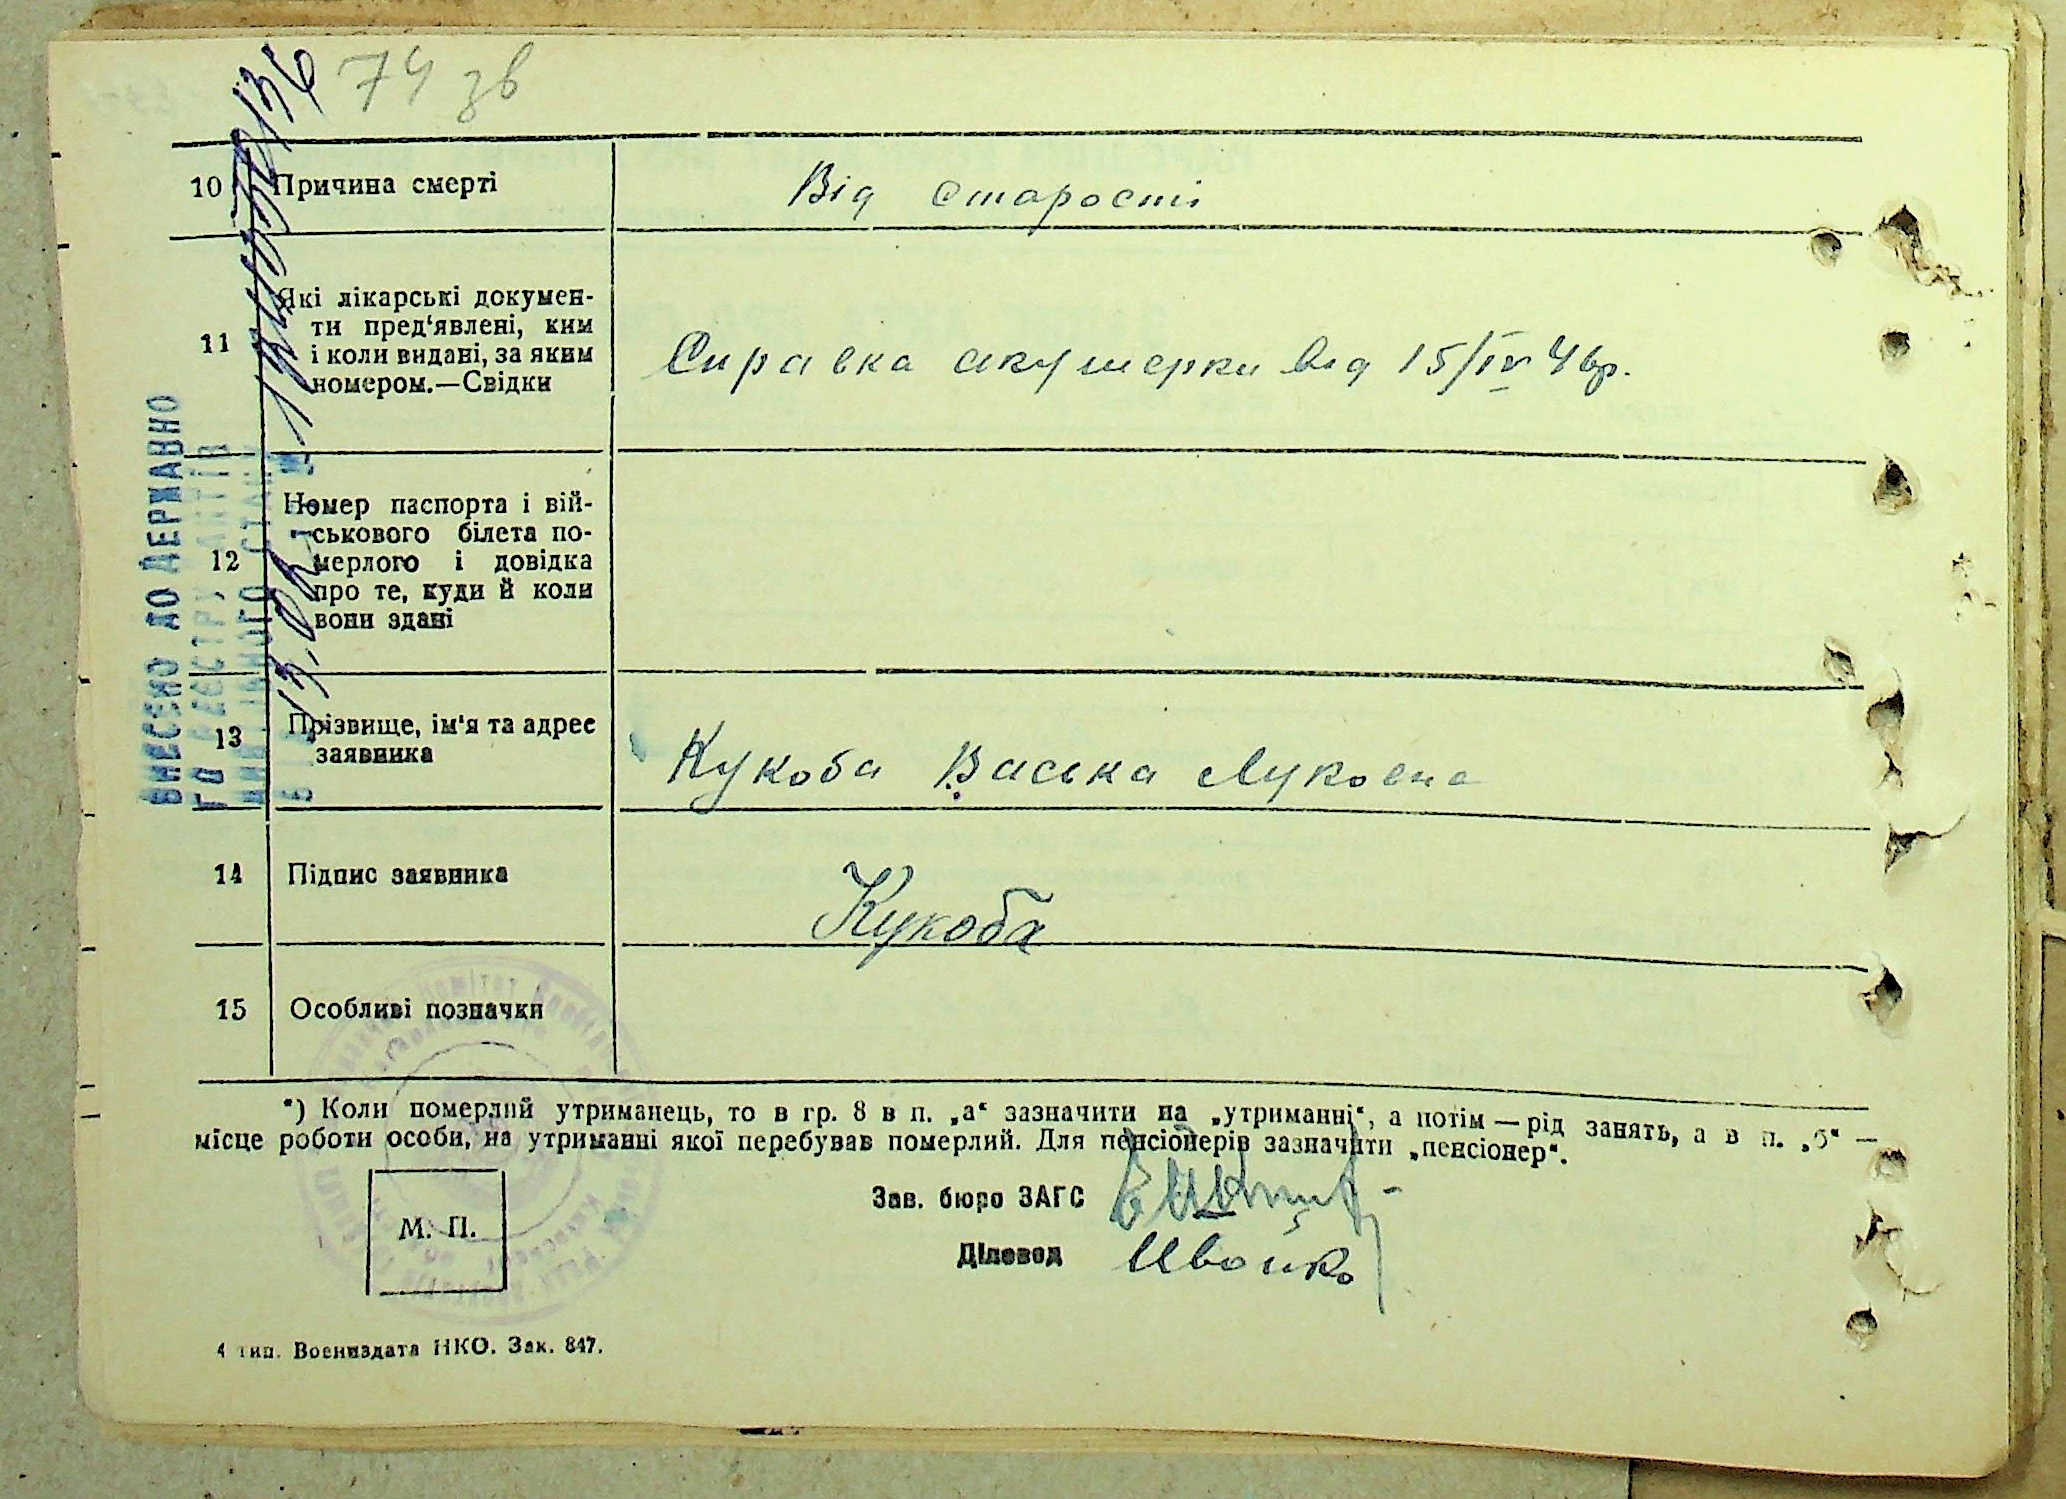 74 зв
10 Причина смерті Від старости
11 Які лікарські докумен-
ти пред'явлені, ким
і коли видані, за яким
номером.—Свідки
Справка акушерки від 15/IV 46р.
12 Номер паспорта і вій-
ськового білета по-
мерлого і довідка
про те, куди й коли
вони здані
13 Прізвище, ім'я та адрес
заявника
Кукоба Васька Луковна
14 Підпис заявника Кукоба
15 Особливі позначки
*) Коли померлий утриманець, то в гр. 8 в п. „а“ зазначити на „утриманні“, а потім — рід занять, а в п. „б“ —
місце роботи особи, на утриманні якої перебував померлий. Для пенсіонерів зазначити „пенсіонер“.
М. П.
Зав. бюро ЗАГС
Діловод
4 тип. Воениздата НКО. Зак. 847.
ВНЕСЕНО ДО ДЕРЖАВНО
ГО РЕЄСТРУ АКТІВ
ЦИВІЛЬНОГО СТАНУ